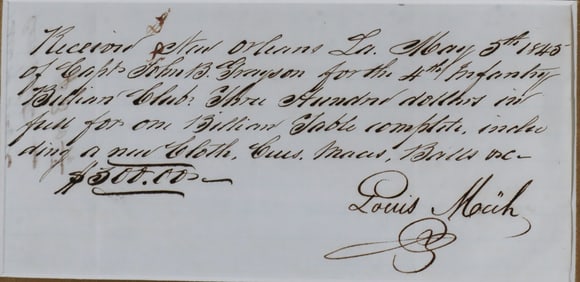 Received New Orleans La. May 5th 1845
of Capt John B. Grayson for the 4th Infantry
Billian Club: Three Hundred dollars in
full for one Billian Table complete, inclu
ding a new Cloth, Cues, Maces, Balls &c
$300.00
Louis